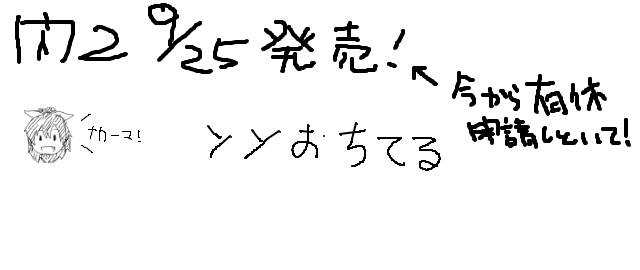 閃2 9/25発売!
今から有休
申請しといて!
ナカーマ!
ンンおちてる